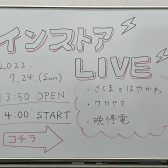 インストア
LIVE
2022.
7.24.(Sun)
13:50 OPEN
14:00 START
・さくまとはやかわ。
・ワカヤマ
・晩修電
コチラ